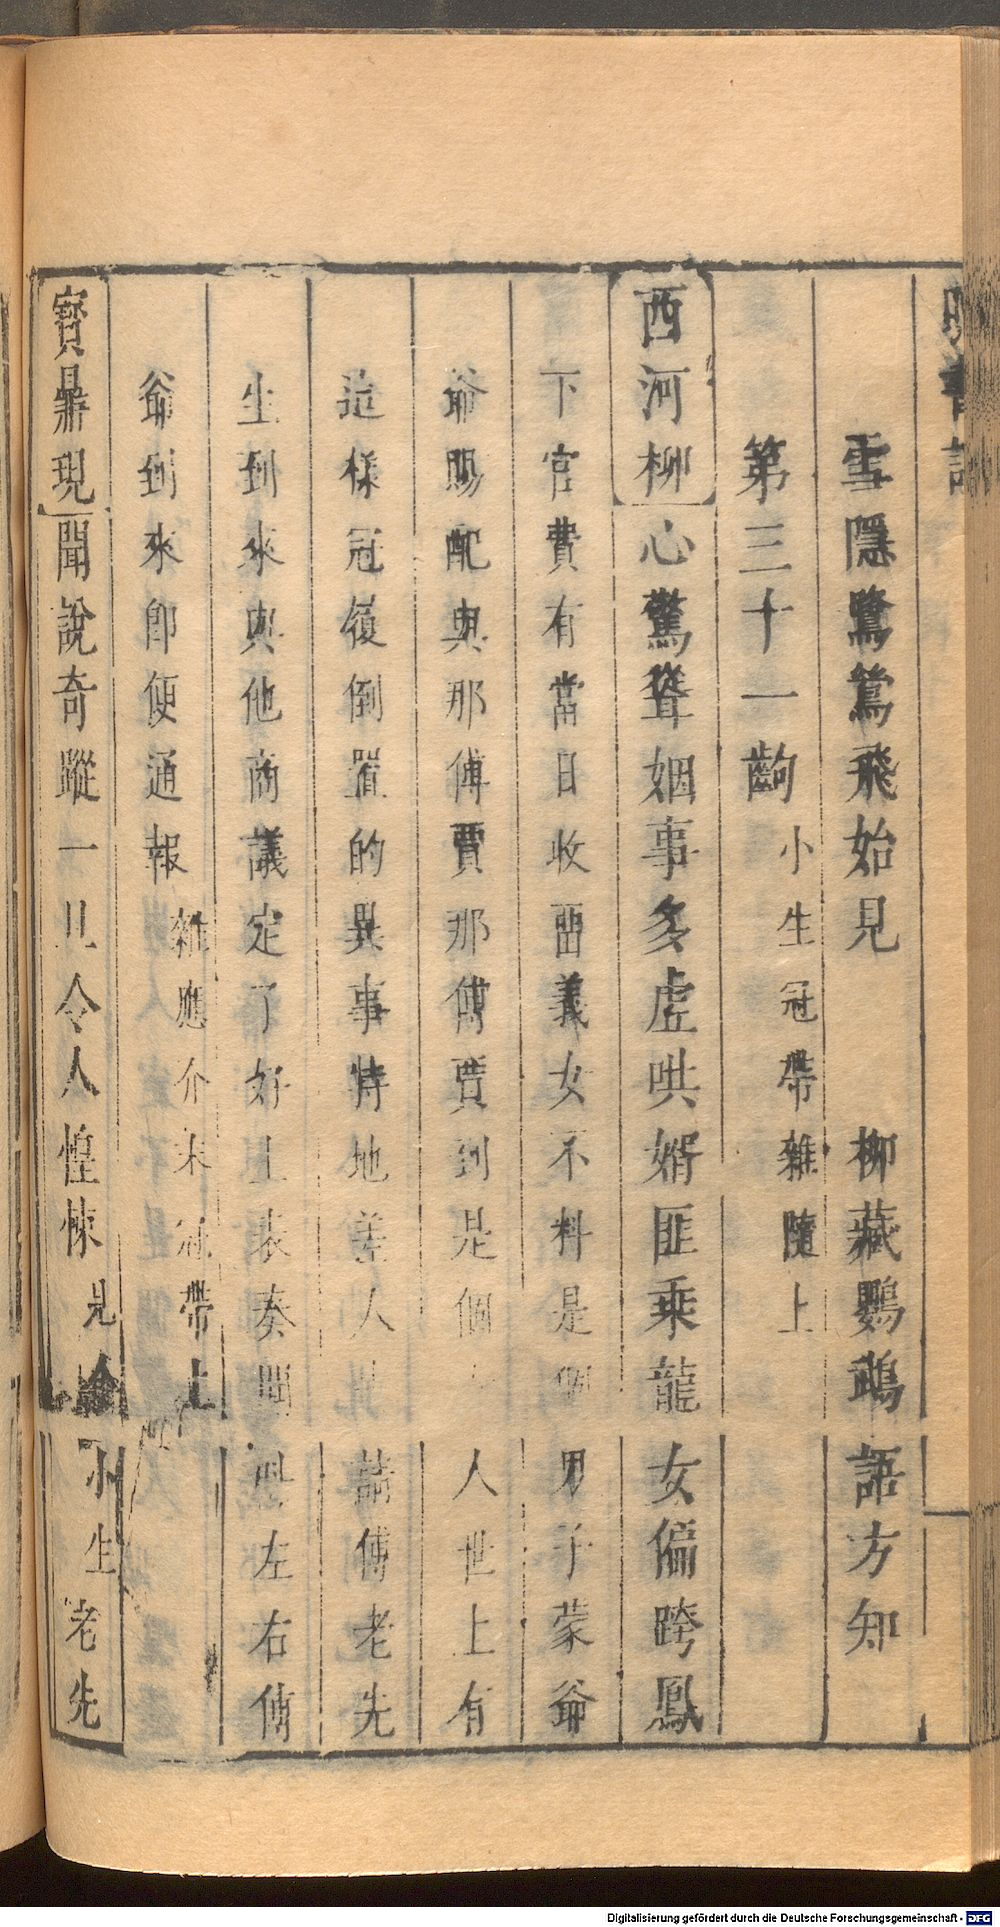 雪隱鷺鷥飛始見　柳藏鸚鵡語方知
第三十一齣 小生冠帶雜隨上
西河柳 心驚聳姻事多虛哄婿匪乘龍女偏跨鳳
下官費有當日收畱義女不料是個男子蒙爺
爺賜配與那傅賈那傅賈到是個人世上有
這樣冠履倒置的異事特地差人請傅老先
生到來與他商議定了好上表奏聞左右傅
爺到來卽便通報 雜應介末冠帶上
寳鼎現 聞說奇蹤一旦令人惶悚 見介小生 老先
Digitalisierung gefördert durch die Deutsche Forschungsgemeinschaft - DFG